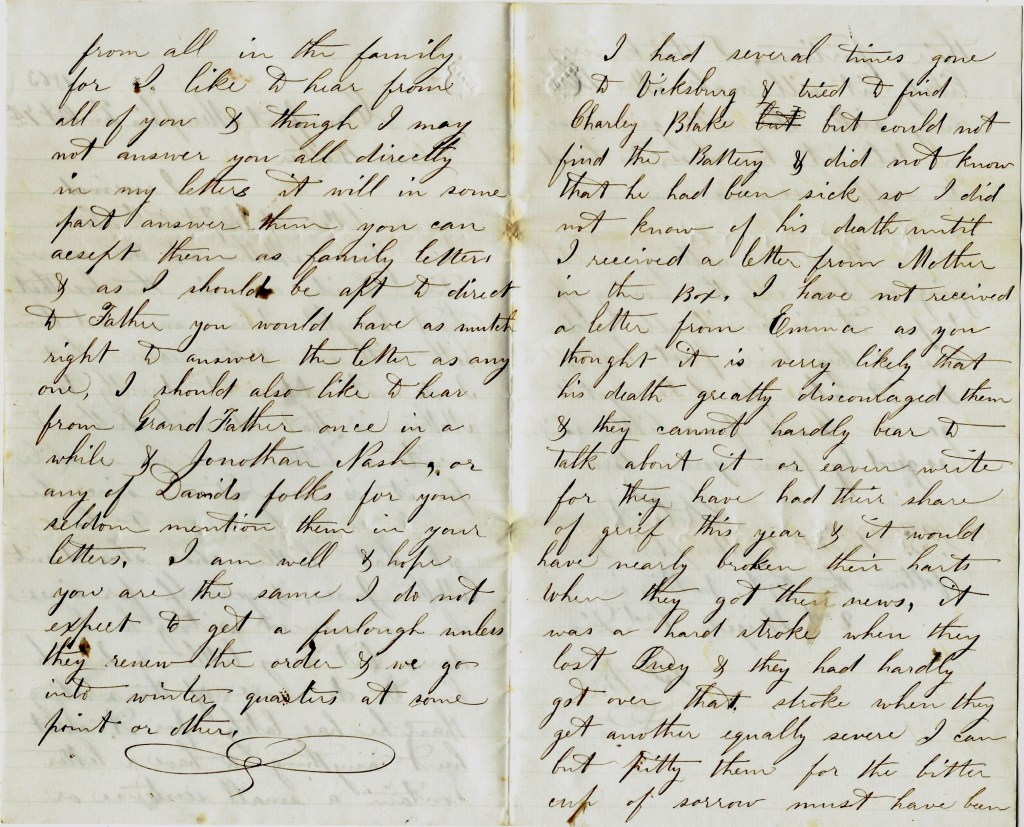 from all in the family
for I like to hear from
all of you & though I may
not answer you all directly
in my letters it will in some
part answer them you can
acsept them as family letters
& as I should be apt to direct
to Father you would have as mutch
right to answer the letter as any
one, I should also like to hear
from Grand Father once in a
while & Jonothan Nash, or
any of Davids folks for you
seldom mention them in your
letters. I am well & hope
you are the same I do not
expect to get a furlough unless
they renew the order & we go
into winter quarters at some
point or other.
I had several times gone
to Vicksburg & tried to find
Charley Blake but but could not
find the Battery & did not know
that he had been sick so I did
not know of his death until
I received a letter from Mother
in the Box. I have not received
a letter from Emma as you
thought it is verry likely that
his death greatly discouraged them
& they cannot hardly bear to
talk about it or eaven write
for they have had their share
of grief this year & it would
have nearly broken their harts
when they got then news, it
was a hard stroke when they
lost Lucy & they had hardly
got over that stroke when they
get another equally severe I can
but Pitty them for the bitter
cup of sorrow must have been